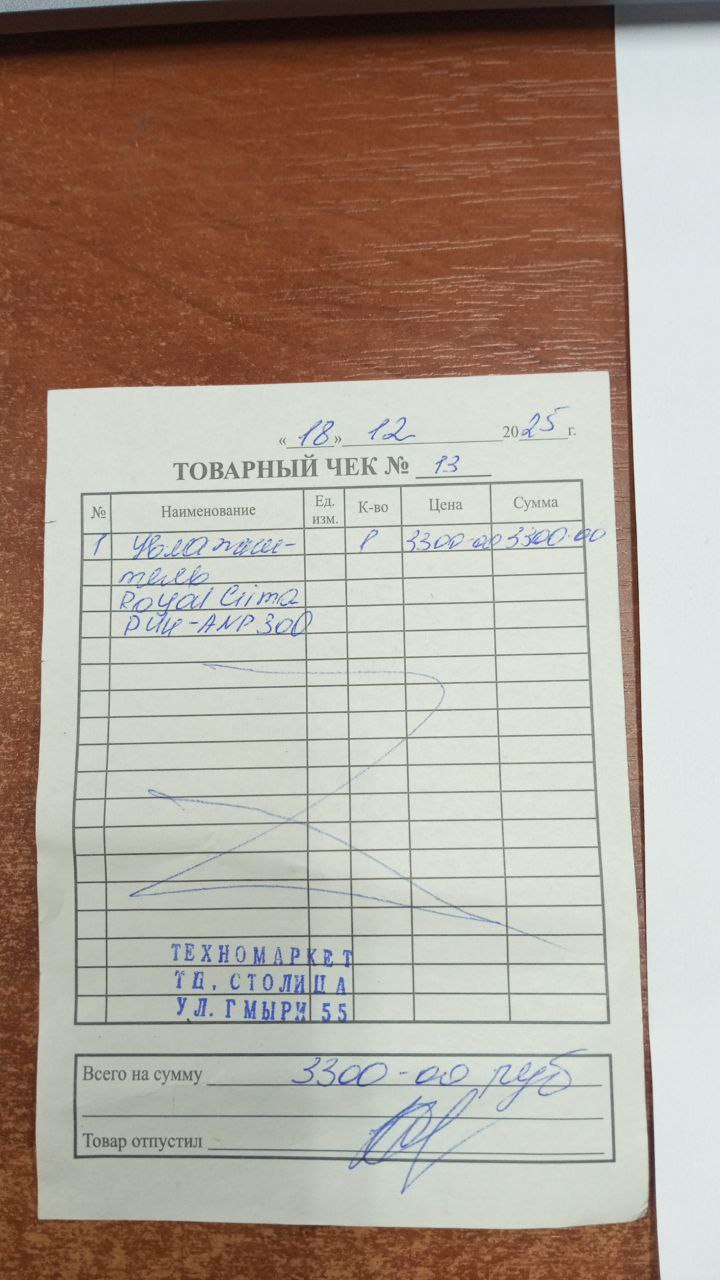 « 18 » 12 2025 г.
ТОВАРНЫЙ ЧЕК № 13
№ Наименование Ед. изм. К-во Цена Сумма
1 Увлажни- 1 3300-00 3300-00
тель
Royal Clima
300
ТЕХНОМАРКЕТ
ТЦ. СТОЛИЦА
УЛ. ГМЫРИ 55
Всего на сумму 3300-00 руб
Товар отпустил